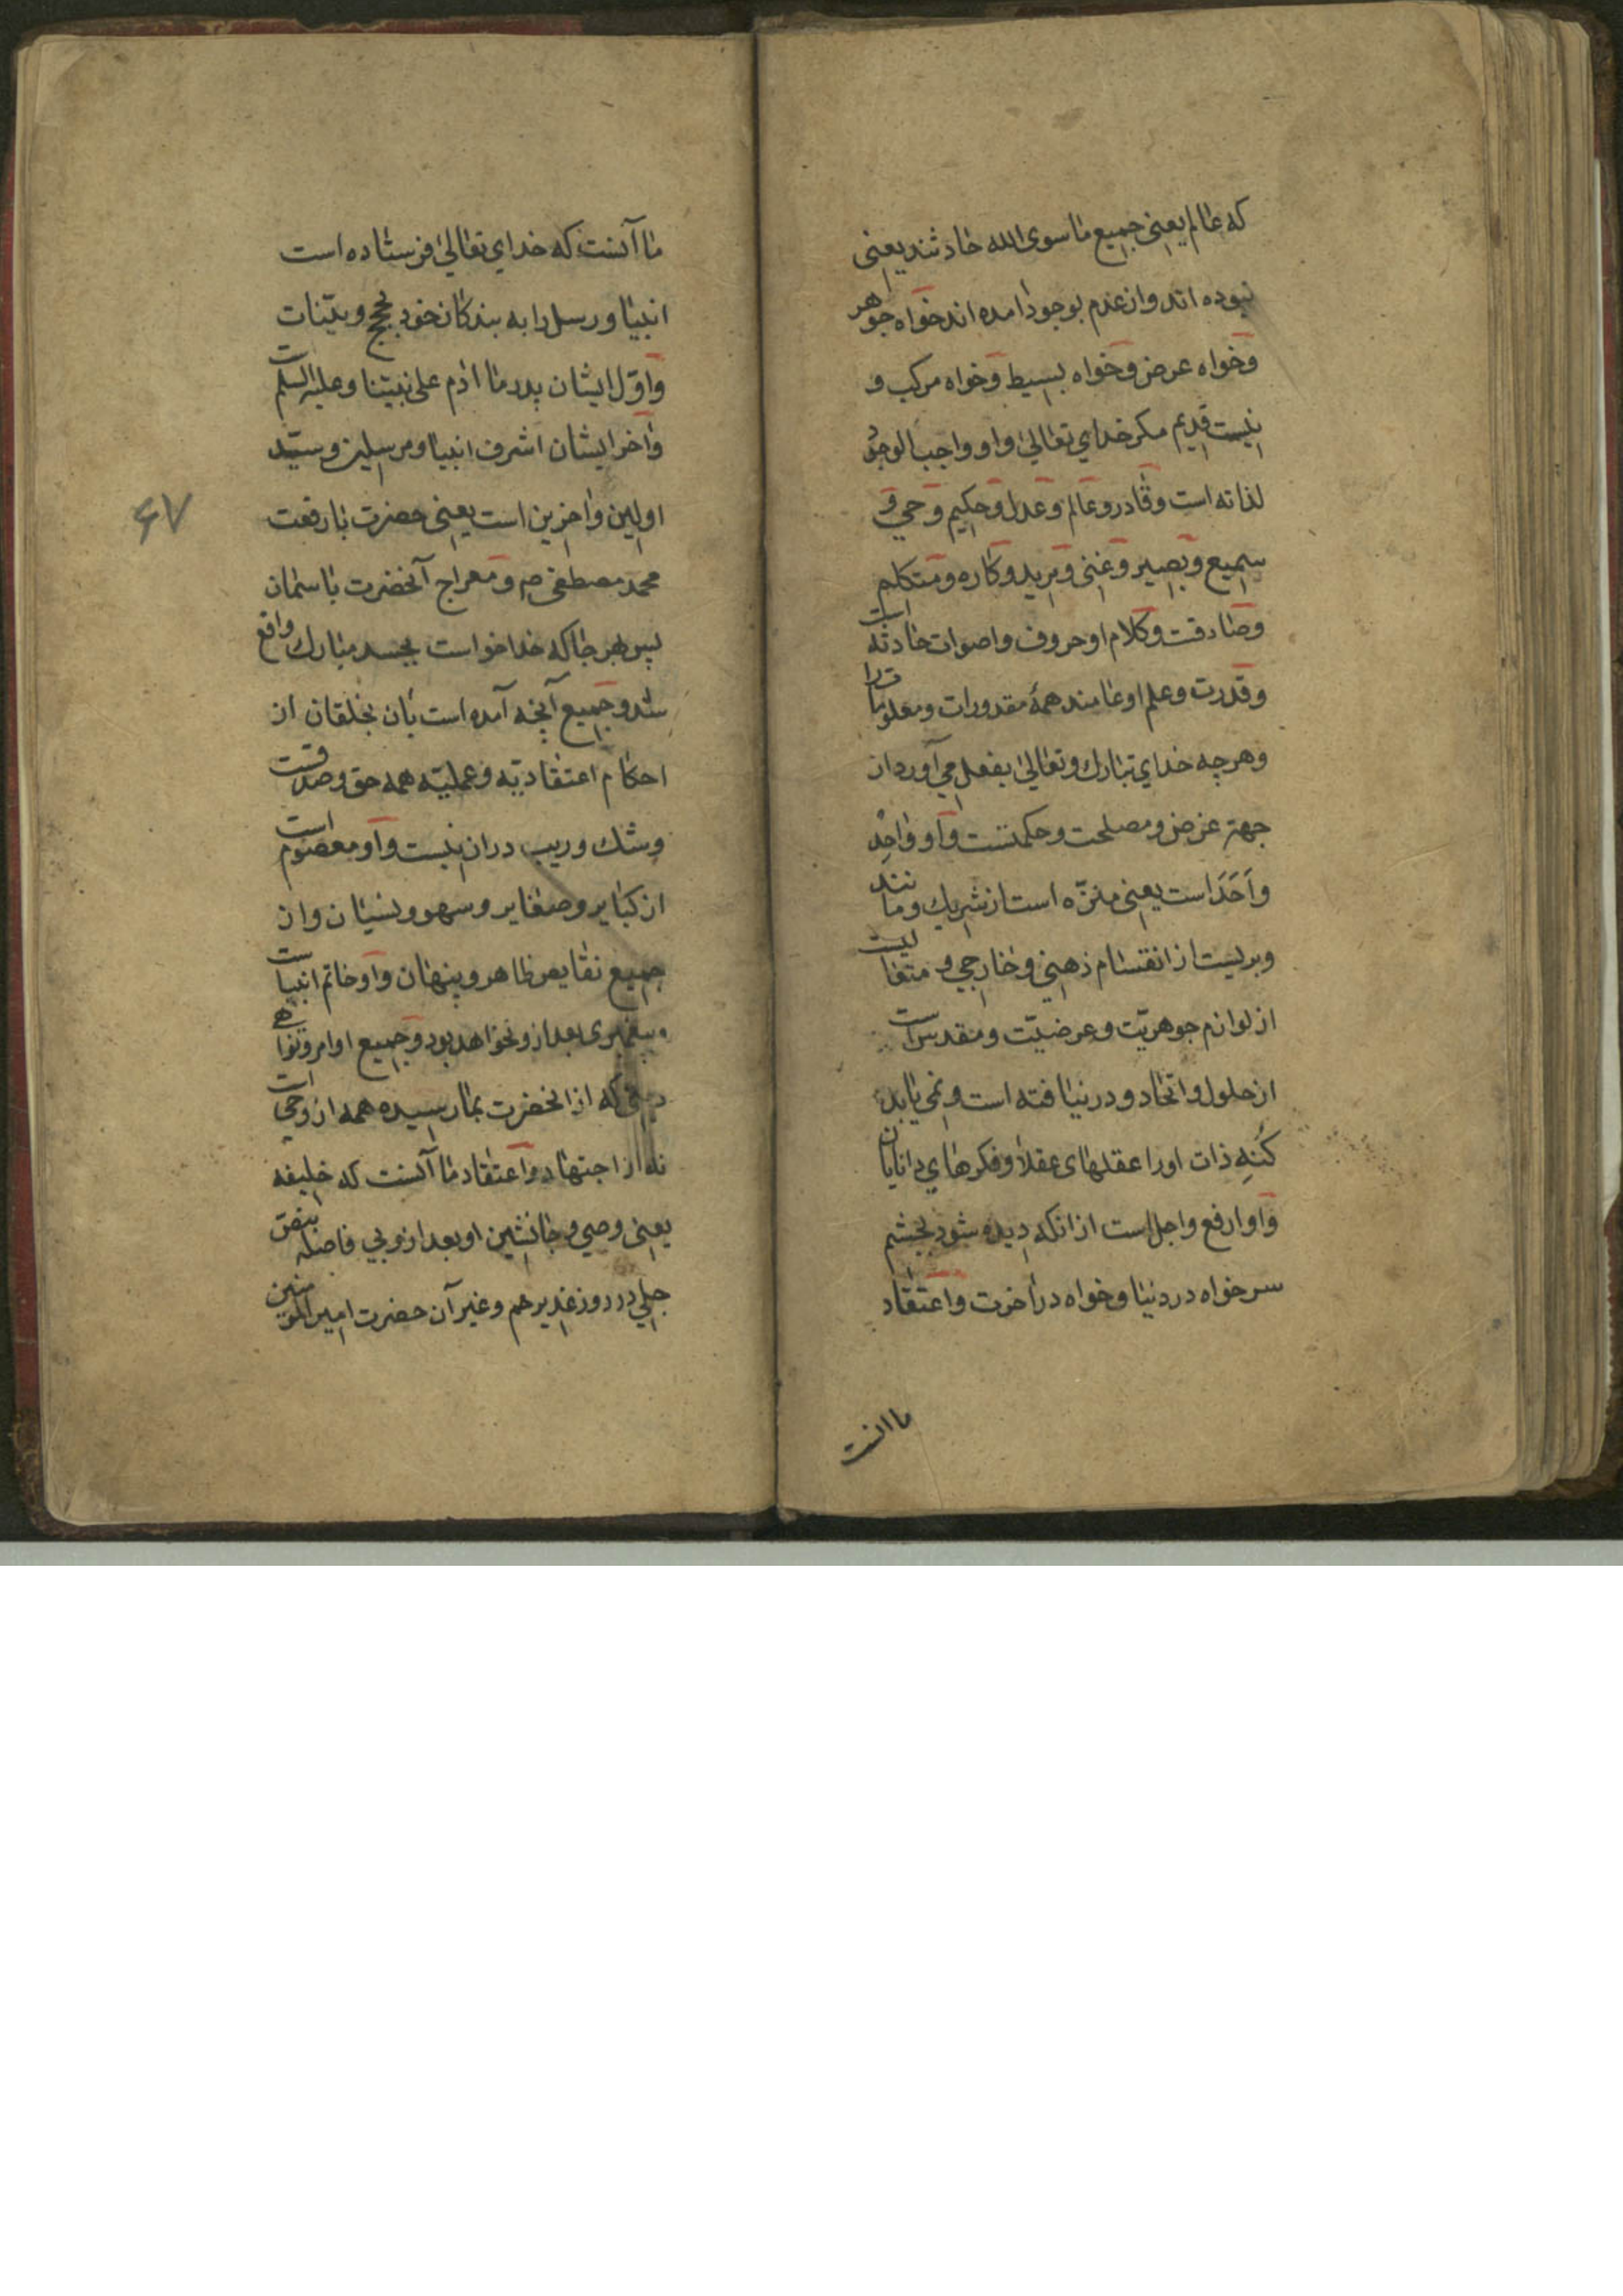 که عالم یعنی جمیع ما سوی الله حادثند یعنی
نبوده اند و از عدم بوجود امده اند خواه جوهر
و خواه عرض و خواه بسیط و خواه مرکب و
نیست قدیم مکر خدای تعالی و او واجب الوجود
لذاته است و قادر و عالم و عدل و حکیم و حی و
سمیع و بصیر و غنی و مرید و کاره و متکلم
و صادقت و کلام او حروف و اصوات حادثه است
و قدرت و علم او عامند همهٔ مقدورات و معلومات را
و هرچه خدای تبارک و تعالی بفعل می آورد از
جهة غرض و مصلحت و حکمتست و او واحِد
و اَحَدَ است یعنی منزّه است از شریک و مانند
و بریست از انقسام ذهنی و خارجی و متعالیست
از لوازم جوهریّت و عرضیّت و مقدس است
از حلول و اتحاد و در نیافته است و نمی یابد
کُنهِ ذات او را عقلهای عقلا و فکرهای دانایان
و او ارفع و اجل است از انکه دیده شود بچشم
سر خواه در دنیا و خواه در آخرت و اعتقاد
ما انست
ما آنست که خدای تعالی فرستاده است
انبیا و رسل را به بندکان خود بحجج و بیّنات
و اوّل ایشان پدر ما ادم علی نبیّنا و علیه السلم است
و آخر ایشان اشرف انبیا و مرسلین و سیّد
اولین و آخرین است یعنی حضرت با رفعت
محمد مصطفی ص و معراج آنحضرت باسمان
پس هر جا که خدا خواست بجسد مبارک واقع
شد و جمیع آنچه آمده است بان بخلقان از
احکام اعتقادیّه و عملیّه همه حق و صدقست
و شک و ریب در ان نیست و او معصوم است
از کبایر و صغایر و سهو و نسیان و از
جمیع نقایص ظاهر و پنهان و او خاتم انبیاست
و پیغمبری بعد از و نخواهد بود و جمیع اوامر و نواهی
دینی که از انحضرت بما رسیده همه از وحی است
نه از اجتهاد و اعتقاد ما آنست که خلیفه
یعنی وصی و جانشین او بعد از و بی فاصله بنص
جلی در روز غدیر خم و غیر آن حضرت امیر المومنین
۶۷